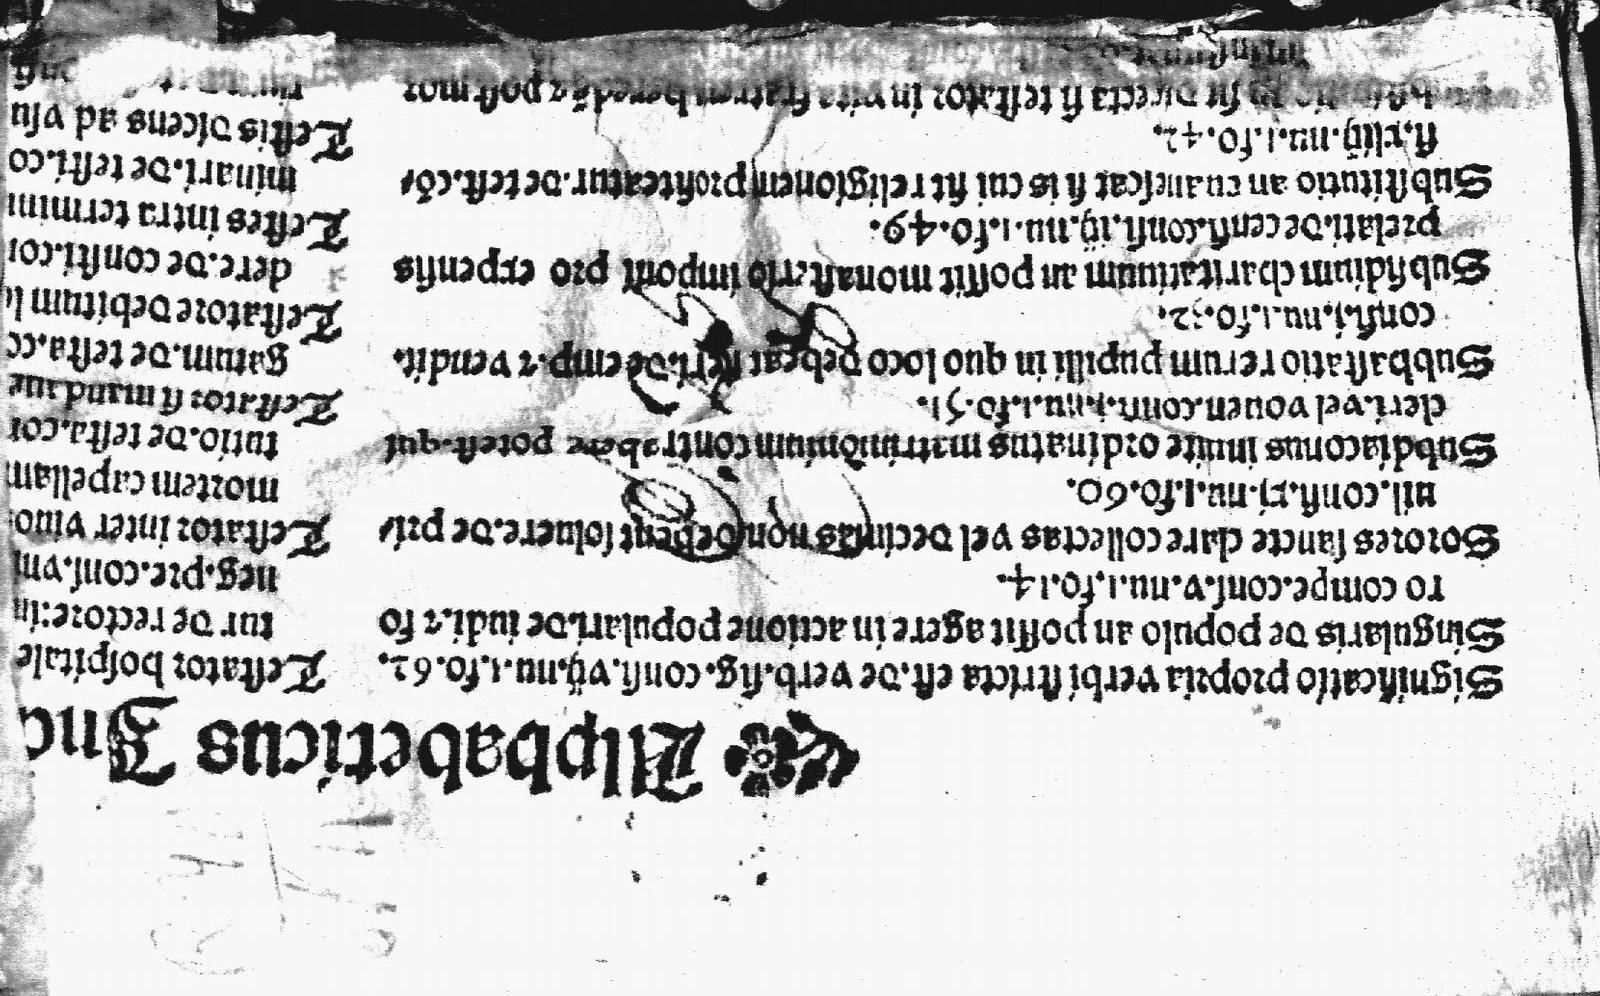 Alphabeticus Ind
Significatio propria verbi stricta est. De verb. sig. cons. vij. nu. i. fo. 62.
Singularis de populo an possit agere in actione populari. De iudi. ⁊ fo
ro compe. cons. v. nu. i. fo. 14.
Sorores sancte clare collectas vel decimas non debent soluere. De pri
uil. cons. xj. nu. i. fo. 60.
Subdiaconus inuite ordinatus matrimonium contrahere potest. qui
cleri. vel vouen. cons. i. nu. i. fo. 51.
Subhastatio rerum pupilli in quo loco debeat fieri. De emp. ⁊ vendit.
cons. i. nu. i. fo. 32.
Subsidium charitatiuum an possit monasterio imponi pro expensis
prelati. De censi. cons. iij. nu. i. fo. 49.
Substitutio an euanescat si is cui fit religionem profiteatur. De test. cõ
si. xliij. nu. i. fo. 42.
directa si testator in vita fratrem heredẽ ⁊ post mor
Testator hospitale
tur de rectore in
neg. pre. cons. vni
Testator inter viuo
mortem capellam
tutio. De testa. con
Testator si mandaue
gatum. De testa. co
Testatore debitum
dere. De consti. con
Testes intra termin
minari. De testi. co
Testis dicens ad vsu